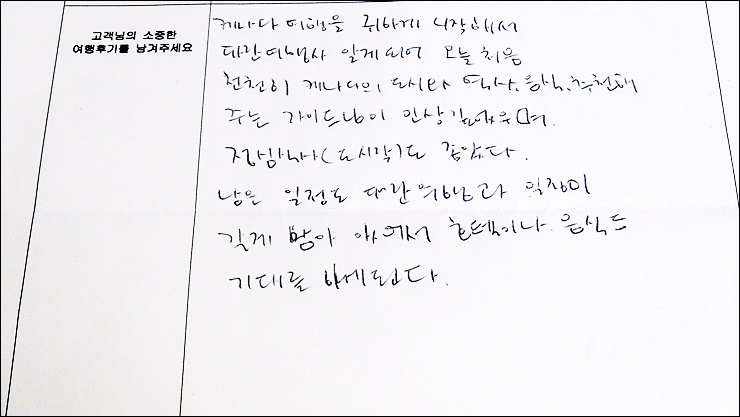 고객님의 소중한
여행후기를 남겨주세요
캐나다 여행을 귀하게 시작해서
대한여행사 알게되어 오늘 처음
천천히 캐나다의 도시와 역사, 음식, 추천해
주는 가이드님이 인상 깊었으며
점심식사(도시락)도 좋았다.
남은 일정도 대한여행과
길게 남아 호텔이나 음식도
기대를 된다.